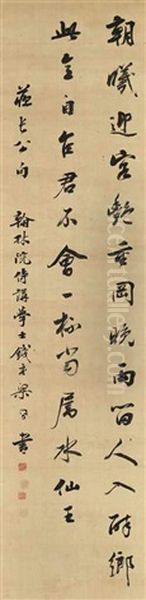 朝曦迎客艷重岡晚雨留人入醉鄉
此意自佳君不會一杯當屬水仙王
蘇長公句 翰林院侍講學士錢唐梁同書